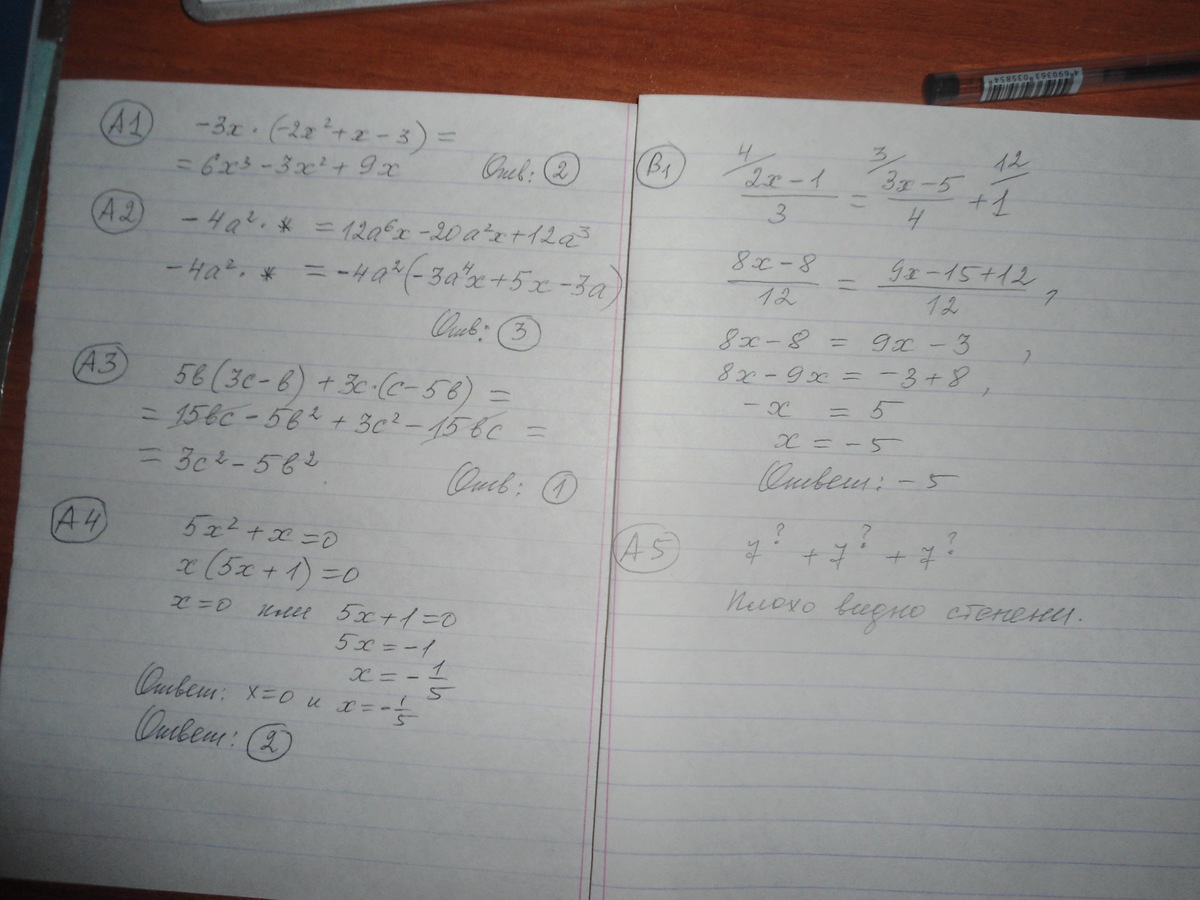 А1 -3x · (-2x² + x - 3) =
= 6x³ - 3x² + 9x Отв: 2
А2 -4a² · * = 12a⁶x - 20a²x + 12a³
-4a² · * = -4a²(-3a⁴x + 5x - 3a)
Отв: 3
А3 5в(3с - в) + 3с·(с - 5в) =
= 15вс - 5в² + 3с² - 15вс =
= 3с² - 5в²
Отв: 1
А4 5x² + x = 0
x(5x + 1) = 0
x = 0 или 5x + 1 = 0
5x = -1
x = -1/5
Ответ: x = 0 и x = -1/5
Ответ: 2
4690363 035854
В1 4/ 3/ 12/
(2x - 1)/3 = (3x - 5)/4 + 1
(8x - 8)/12 = (9x - 15 + 12)/12 ,
8x - 8 = 9x - 3 ,
8x - 9x = -3 + 8 ,
-x = 5
x = -5
Ответ: -5
А5 7^? + 7^? + 7^?
Плохо видно степени.